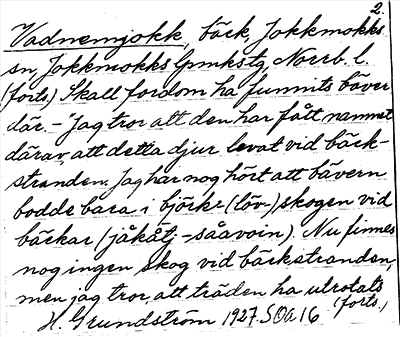 2.
Vadnemjokk, bäck, Jokkmokks
sn, Jokkmokks lpmkstg, Norrb. l.
(forts.) Skall fordom ha funnits bäver
där. - Jag tror att den har fått namnet
därav, att detta djur levat vid bäck-
stranden. Jag har nog hört att bävern
bodde bara i björk- (löv-)skogen vid
bäckar (jåkåtj-såavoin). Nu finnes
nog ingen skog vid bäckstranden,
men jag tror, att träden ha utrotats
(forts.)
H. Grundström 1927. SOA 16